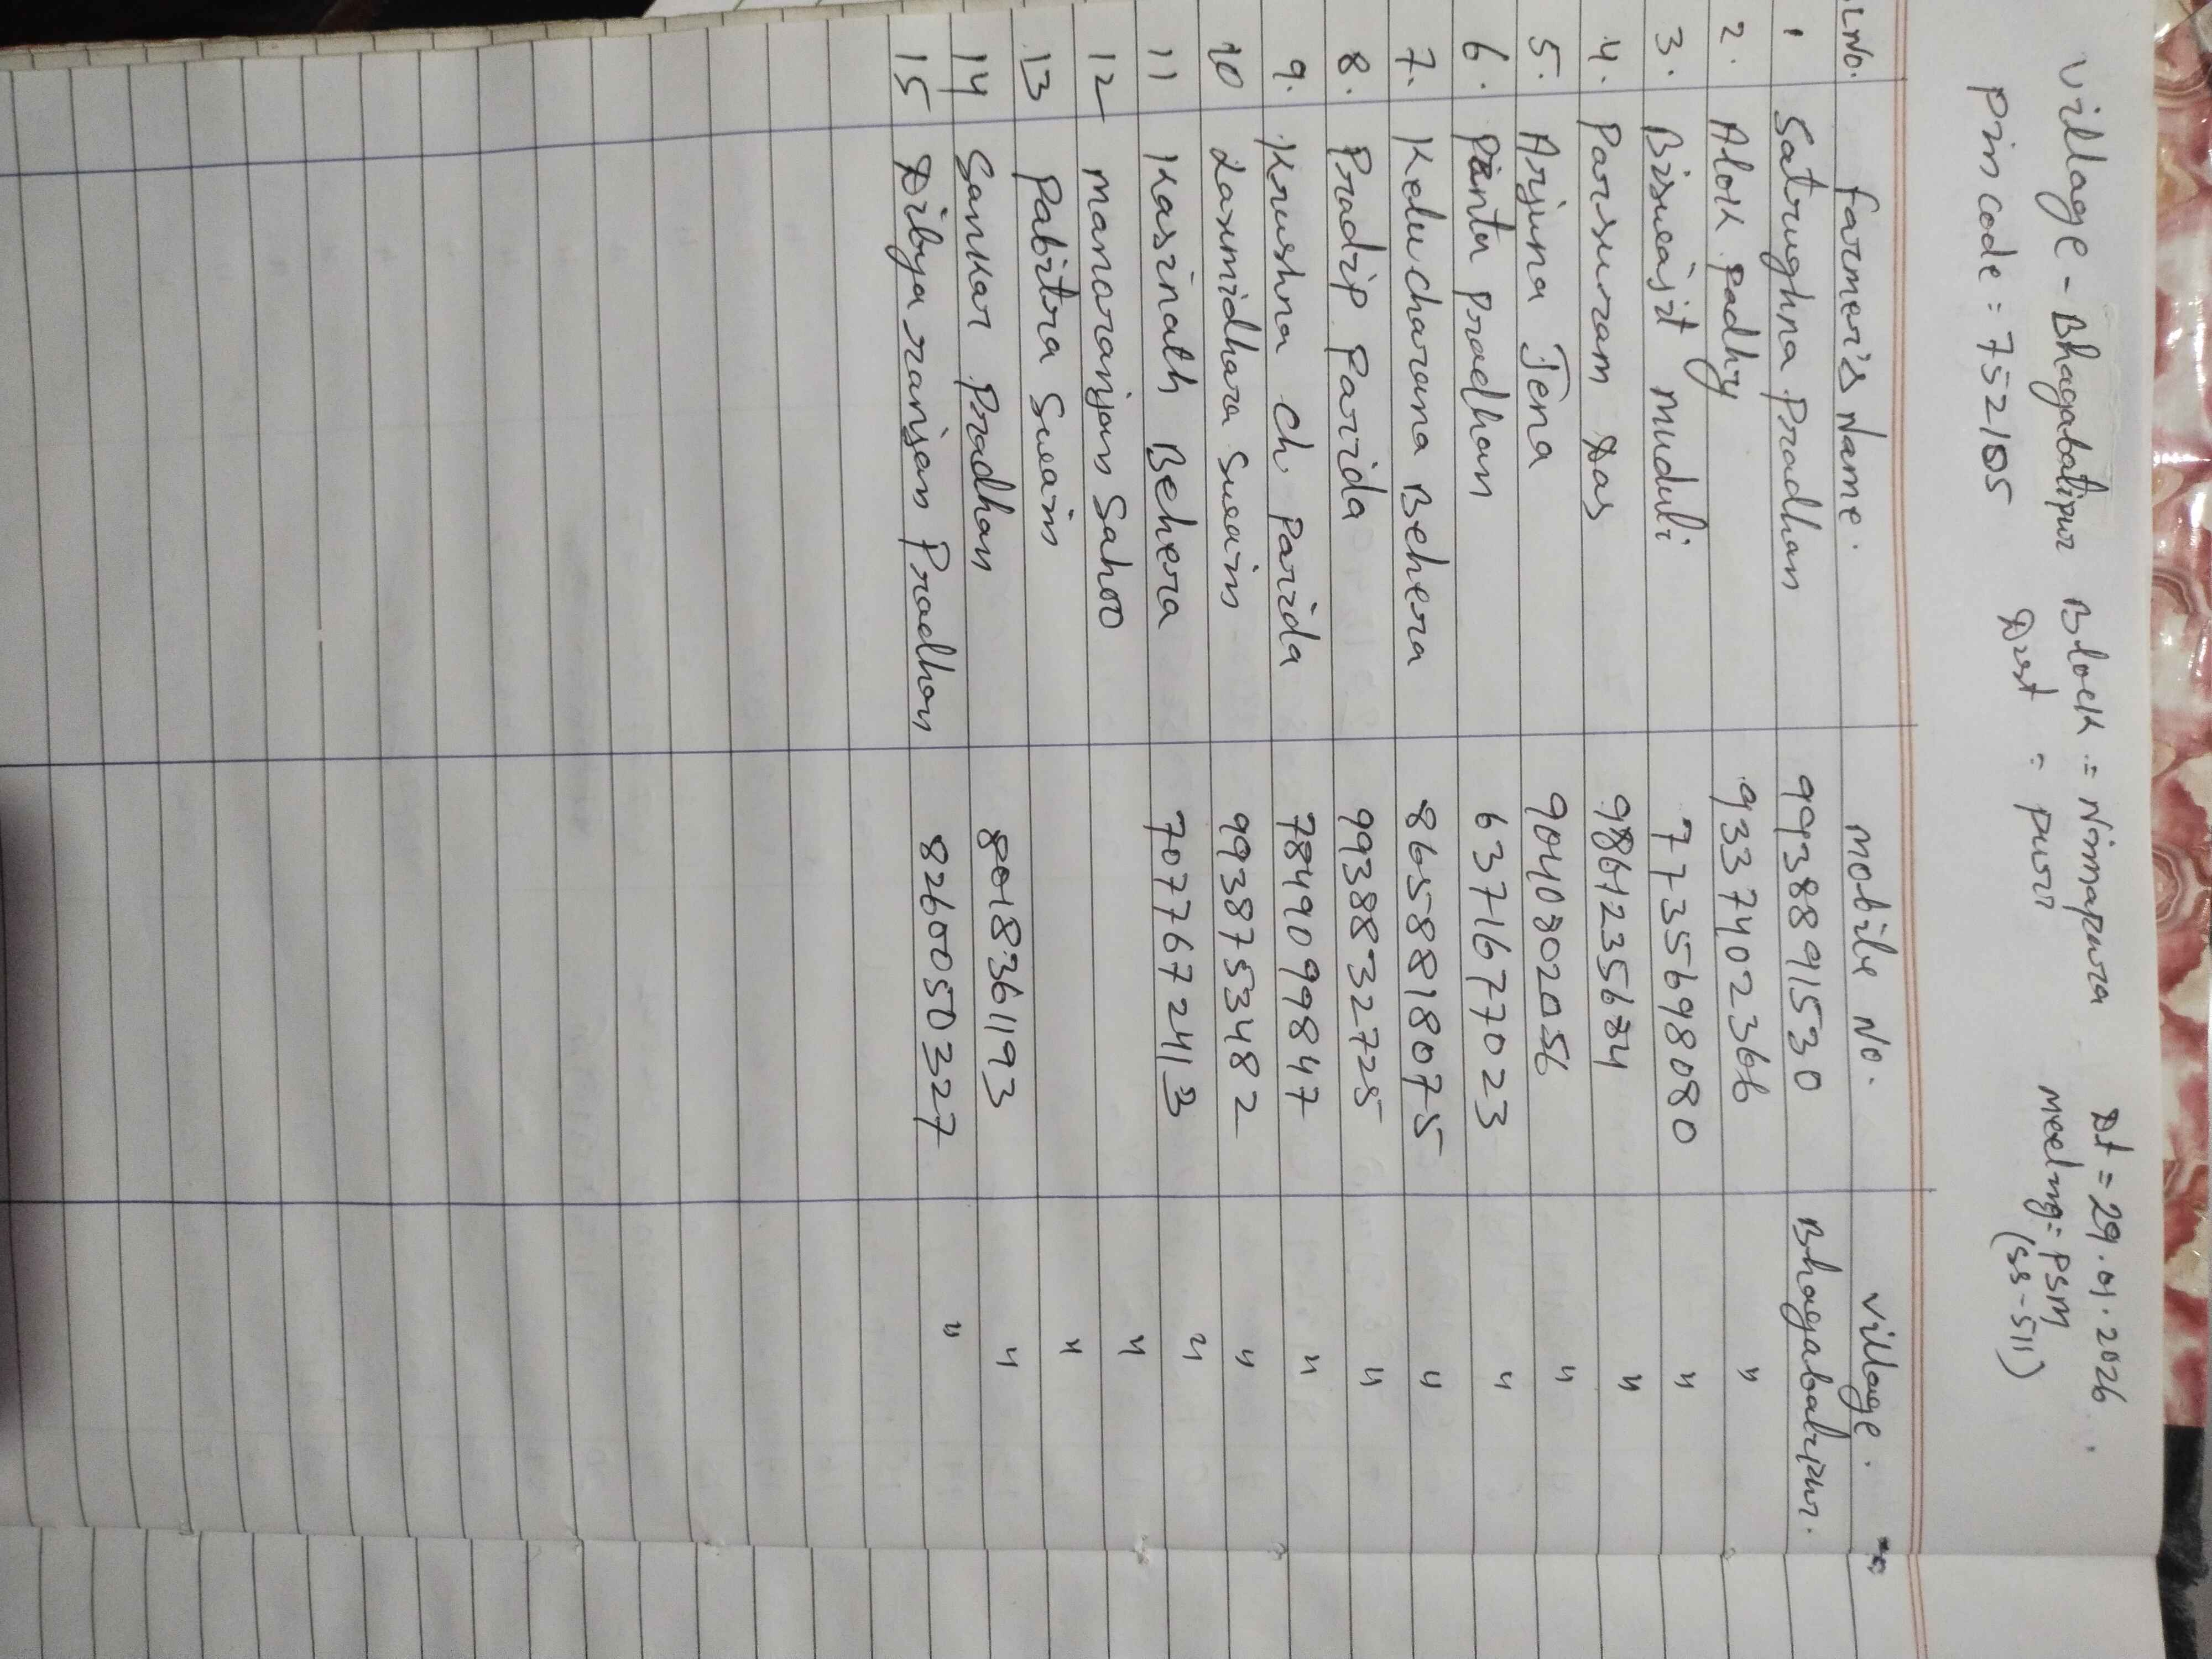 Village - Bhagabatipur Block = Nimapara Dt = 29.01.2026
Pin code = 752105 Dist = puri Meeting = PSM
(SS-511)
SL No. farmer's Name. Mobile No. village.
1 Satrughna Pradhan 9938891530 Bhagabatipur.
2. Alok padhy 9337402366 "
3. Biswajit Muduli 7735698080 "
4. Parsuram Das 9861235684 "
5. Arjuna Jena 9040802056 "
6. Pintu Pradhan 6371677023 "
7. Kelucharana Behera 8658818075 "
8. Pradip Parida 9938832725 "
9. Krushna ch Parida 7849099847 "
10 Laxmidhara Swain 9938753482 "
11 Kasinath Behera 7077672413 "
12 Manoranjan Sahoo "
13 Pabitra Swain "
14 Sankar Pradhan 8018361193 "
15 Dibya ranjan Pradhan 8260050327 "